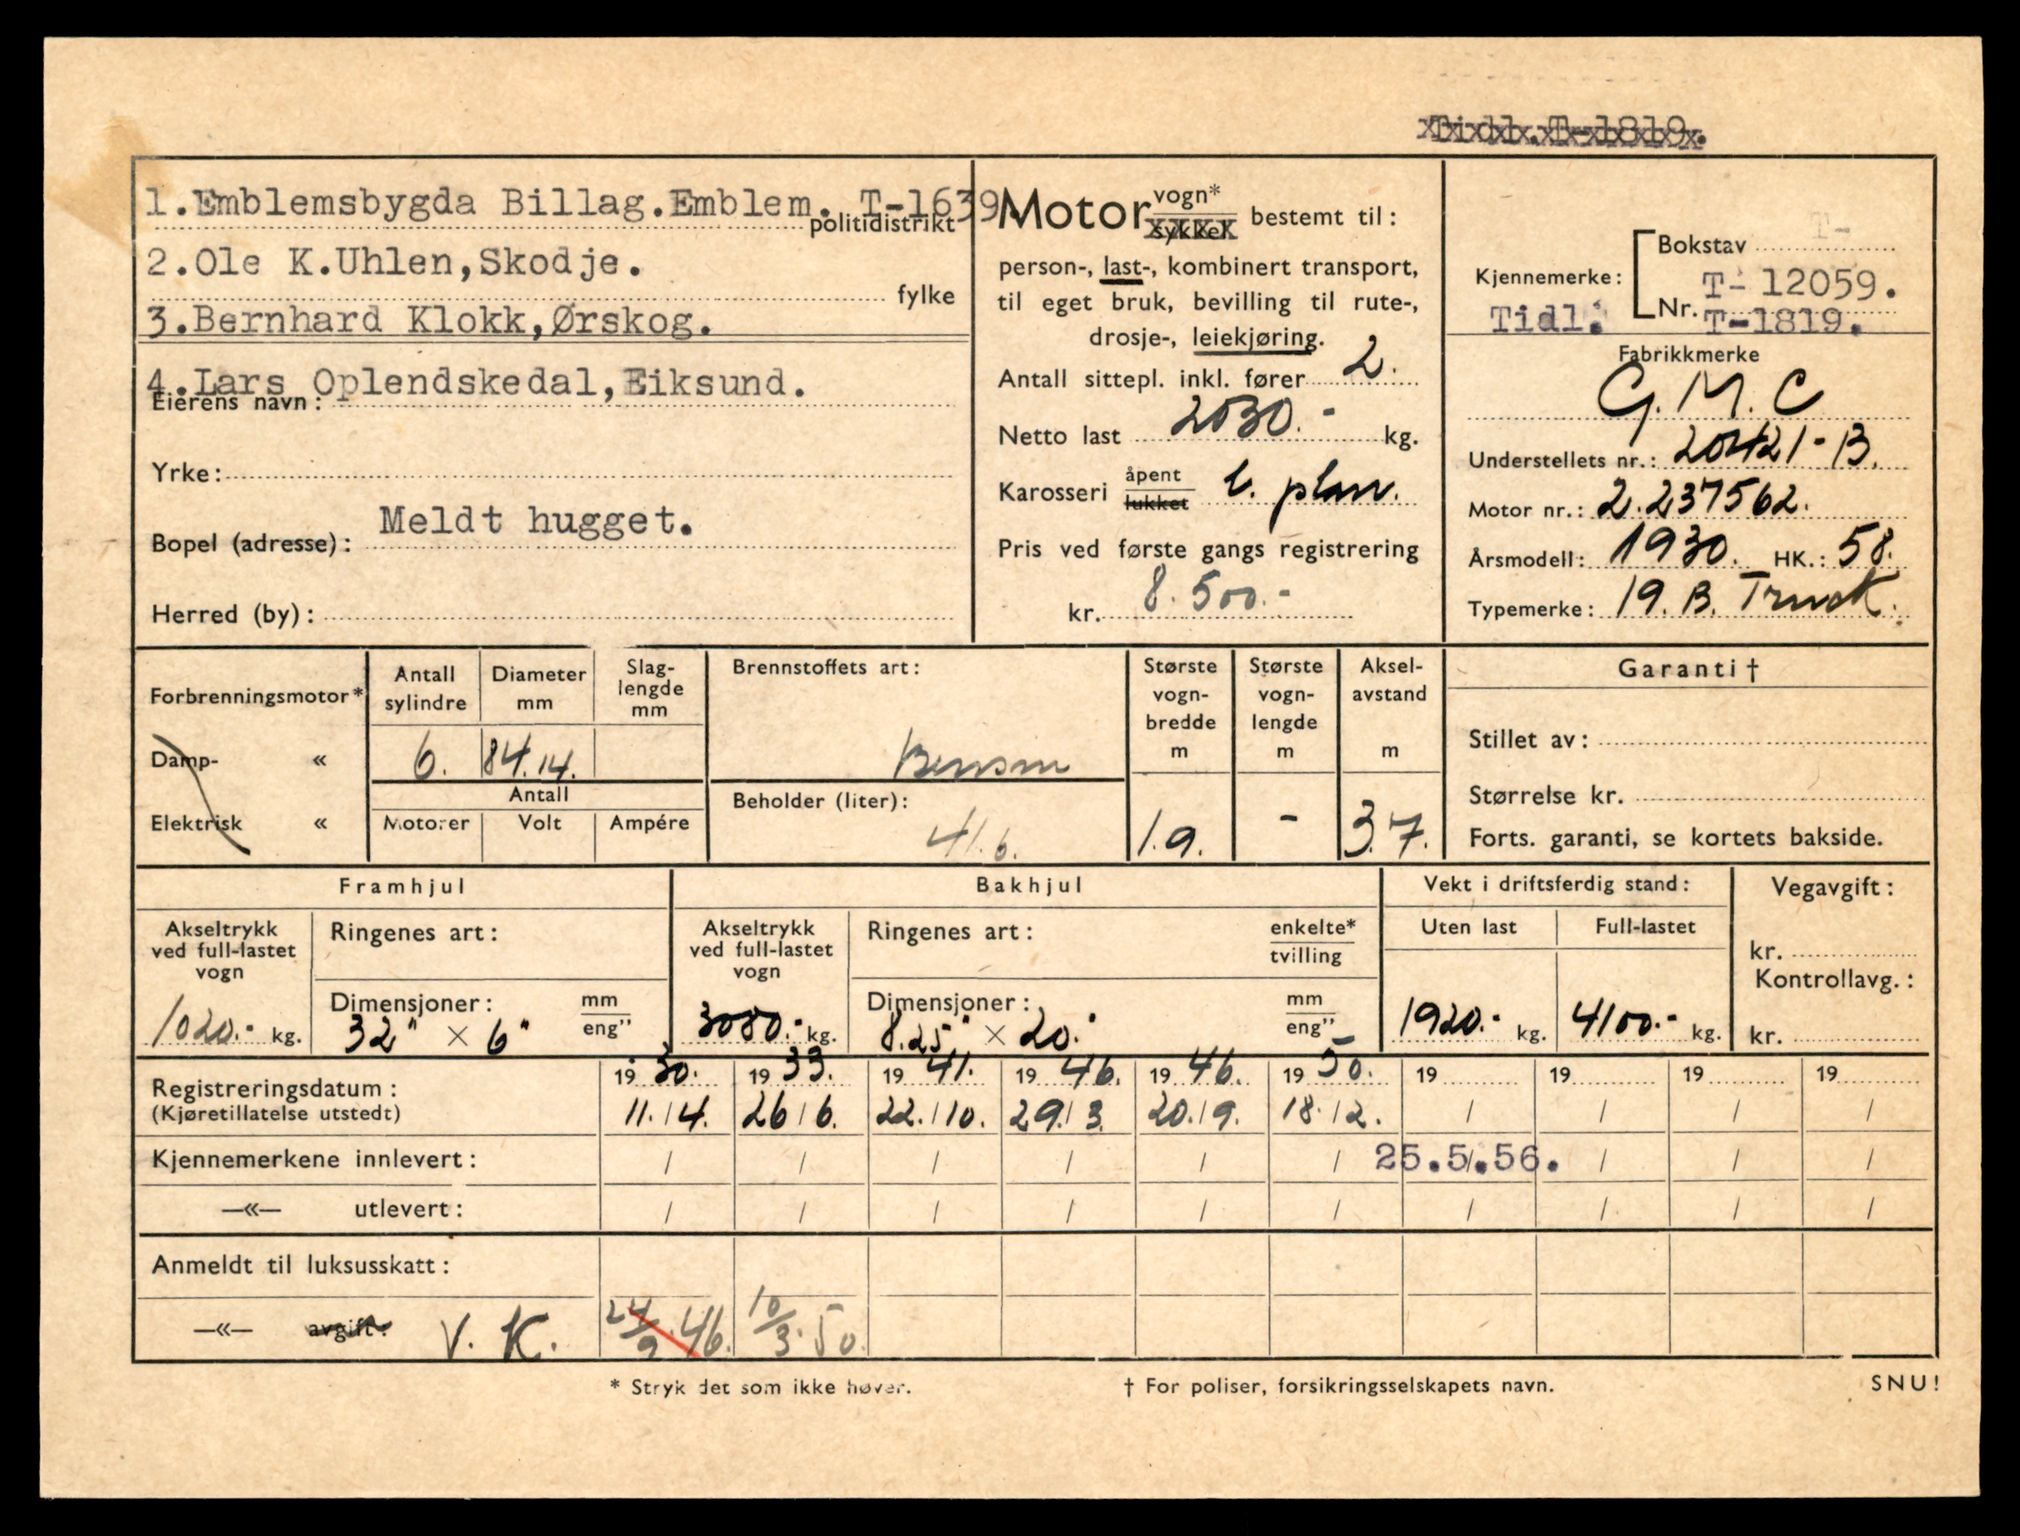 Tidl. T-1819.
1.Emblemsbygda Billag.Emblem. T-1639.
politidistrikt
2.Ole K.Uhlen,Skodje.
fylke
3.Bernhard Klokk,Ørskog.
4.Lars Oplendskedal,Eiksund.
Eierens navn:
Yrke:
Bopel (adresse): Meldt hugget.
Herred (by):
Motor vogn* sykkel bestemt til:
person-, last-, kombinert transport,
til eget bruk, bevilling til rute-,
drosje-, leiekjøring.
Antall sittepl. inkl. fører 2.
Netto last 2030.- kg.
Karosseri åpent lukket l. plan.
Pris ved første gangs registrering
kr. 8.500.-
Bokstav T-
Kjennemerke: T-12059.
Tidl: Nr. T-1819.
Fabrikkmerke
G.M.C
Understellets nr.: 20421-B.
Motor nr.: 2.237562.
Årsmodell: 1930. HK.: 58.
Typemerke: 19.B. Truck.
Forbrenningsmotor*
Damp- «
Elektrisk «
Antall sylindre
6.
Diameter mm
84.14.
Slag-
lengde
mm
Antall
Motorer Volt Ampére
Brennstoffets art:
Bensin
Beholder (liter):
41.6.
Største
vogn-
bredde
m
1.9.
Største
vogn-
lengde
m
-
Aksel-
avstand
m
3.7.
Garanti †
Stillet av:
Størrelse kr.
Forts. garanti, se kortets bakside.
Framhjul
Akseltrykk
ved full-lastet
vogn
1020.- kg.
Ringenes art:
Dimensjoner: mm eng"
32" × 6"
Bakhjul
Akseltrykk
ved full-lastet
vogn
3080.- kg.
Ringenes art: enkelte* tvilling
Dimensjoner: mm eng"
8.25" × 20."
Vekt i driftsferdig stand:
Uten last Full-lastet
1920.- kg. 4100.- kg.
Vegavgift:
kr.
Kontrollavg.:
kr.
Registreringsdatum: 19 30. 19 33. 19 41. 19 46. 19 46. 19 50. 19 19 19 19
(Kjøretillatelse utstedt) 11./4. 26/6. 22./10. 29./3. 20./9. 18./2. / / / /
Kjennemerkene innlevert: / / / / / / 25.5.56. / / /
—«— utlevert: / / / / / / / / / /
Anmeldt til luksusskatt:
—«— avgift: V. K. 24/9.46. 10/3.50.
* Stryk det som ikke høver.
† For poliser, forsikringsselskapets navn.
SNU!